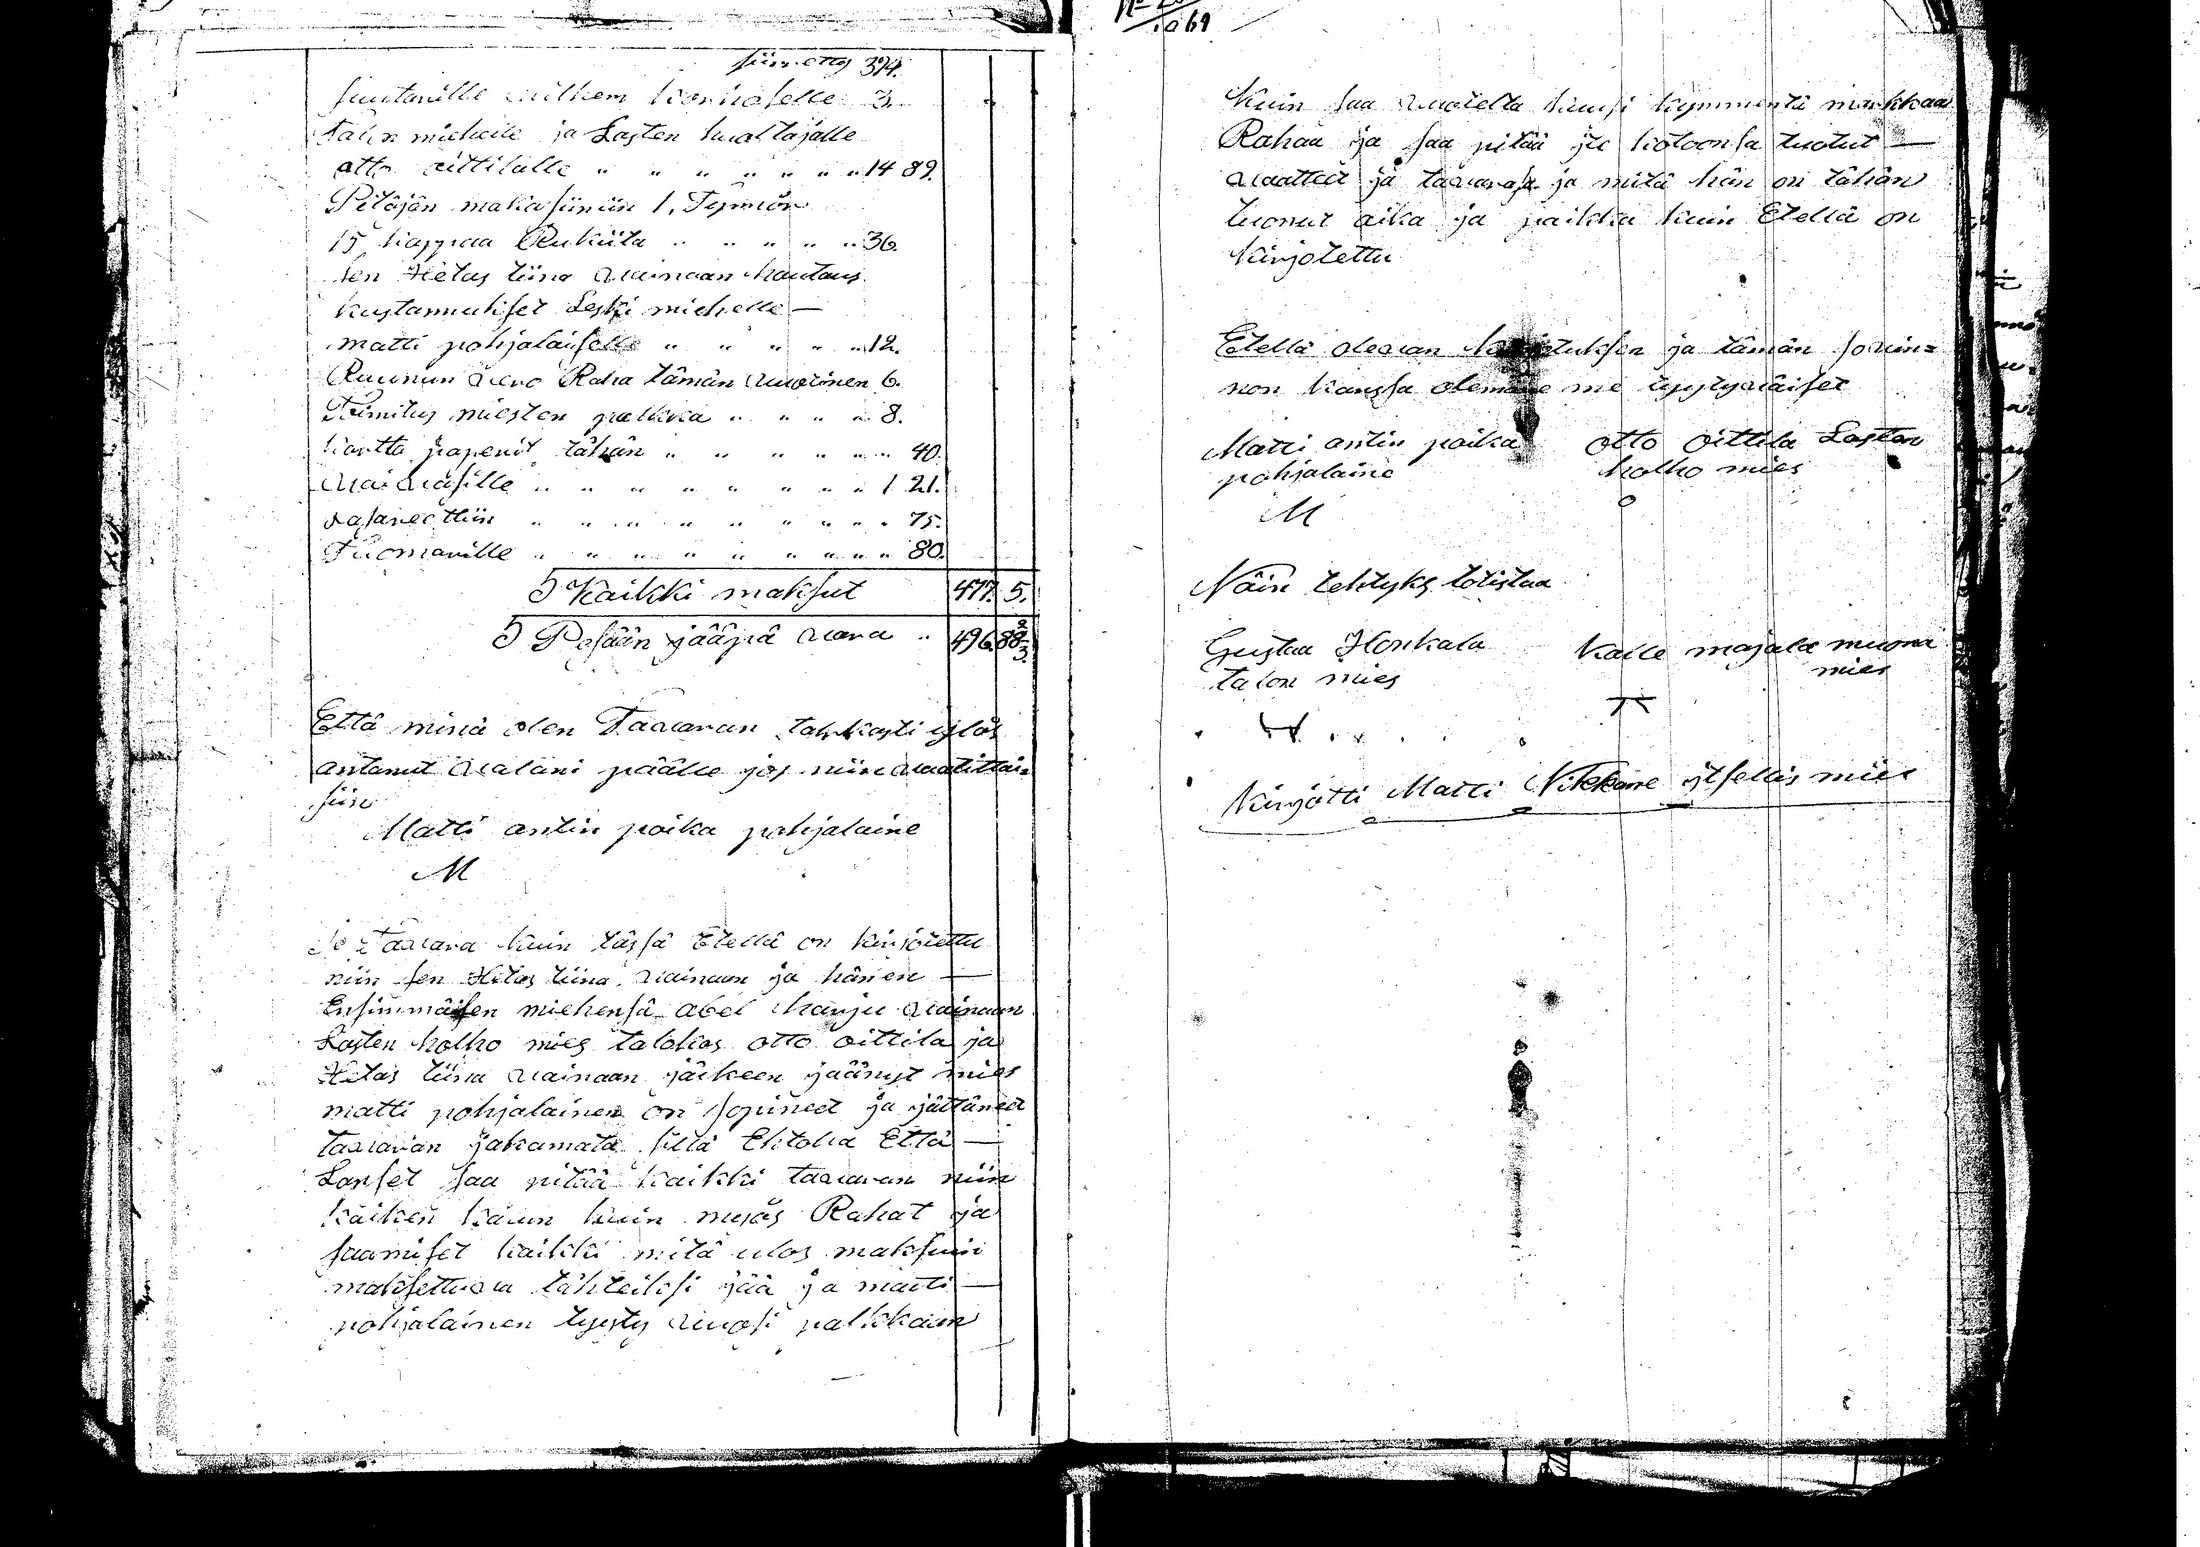 siirretty 394.
suutarille vilhem korhoselle 3.
Talon miehelle ja Lasten huoltajalle
otto oittilalle " " " " " " 14 89.
Pitäjän makasiiniin 1, Tynnör
15 kappaa Rukiita " " " " " 36.
sen Hetas tiina vainaan hautaus
kustannukset Leski miehelle —
matti pohjalaiselle " " " " " 12.
Ruunun vero Raha tämän vuotinen 6.
Toimitus miesten palkka " " " " 8.
kartta paperit tähän " " " " " " 40.
vaivasille " " " " " " " " 1 21.
" " " " " " " " 75.
Tuomarille " " " " " " " " 80.
S Kaikki maksut 477. 5.
S Pesään jääpä vara " 496 88 2/3.
Että minä olen Taavaran tarkasti ylös
antanut valani päälle jos niin vaatittai=
siin
Matti antin poika pohjalaine
M
Se Taavara kuin tässä Etellä on kirjoitettu
niin sen Hetas tiina vainaan ja hänen —
Ensimmäisen miehensä abel harju vainaan
Lasten holho mies talokas otto oittila ja
Hetas tiina vainaan jälkeen jäänyt mies
matti pohjalainen on sopineet ja jättäneet
taavaran jakamata sillä Ehtolla Että —
Lapset saa pitää kaikki taavaran niin
kaiken kalun kuin myös Rahat ja
saamiset kaikki mitä ulos maksuin
maksettua tähteiksi jää ja matti —
pohjalainen tyyty vuosi palkkaan
1069
Kuin saa vuotelta kuusi kymmentä markkaa
Rahaa ja saa pitää ite kotoonsa tuotut —
vaatteet ja taavarat ja mitä hän on tähän
tuonut aika ja paikka kuin Etellä on
kirjotettu
Etellä olevan kirjotuksen ja tämän sovin=
non kanssa olemme me tyytyväiset
Matti antin poika otto oittila Lasten
pohjalaine holho mies
M
Näin tehtyks totistaa
Gustaa Honkala Kalle majala muona
talon mies mies
Kirjotti Matti Nikkane itsellis mies